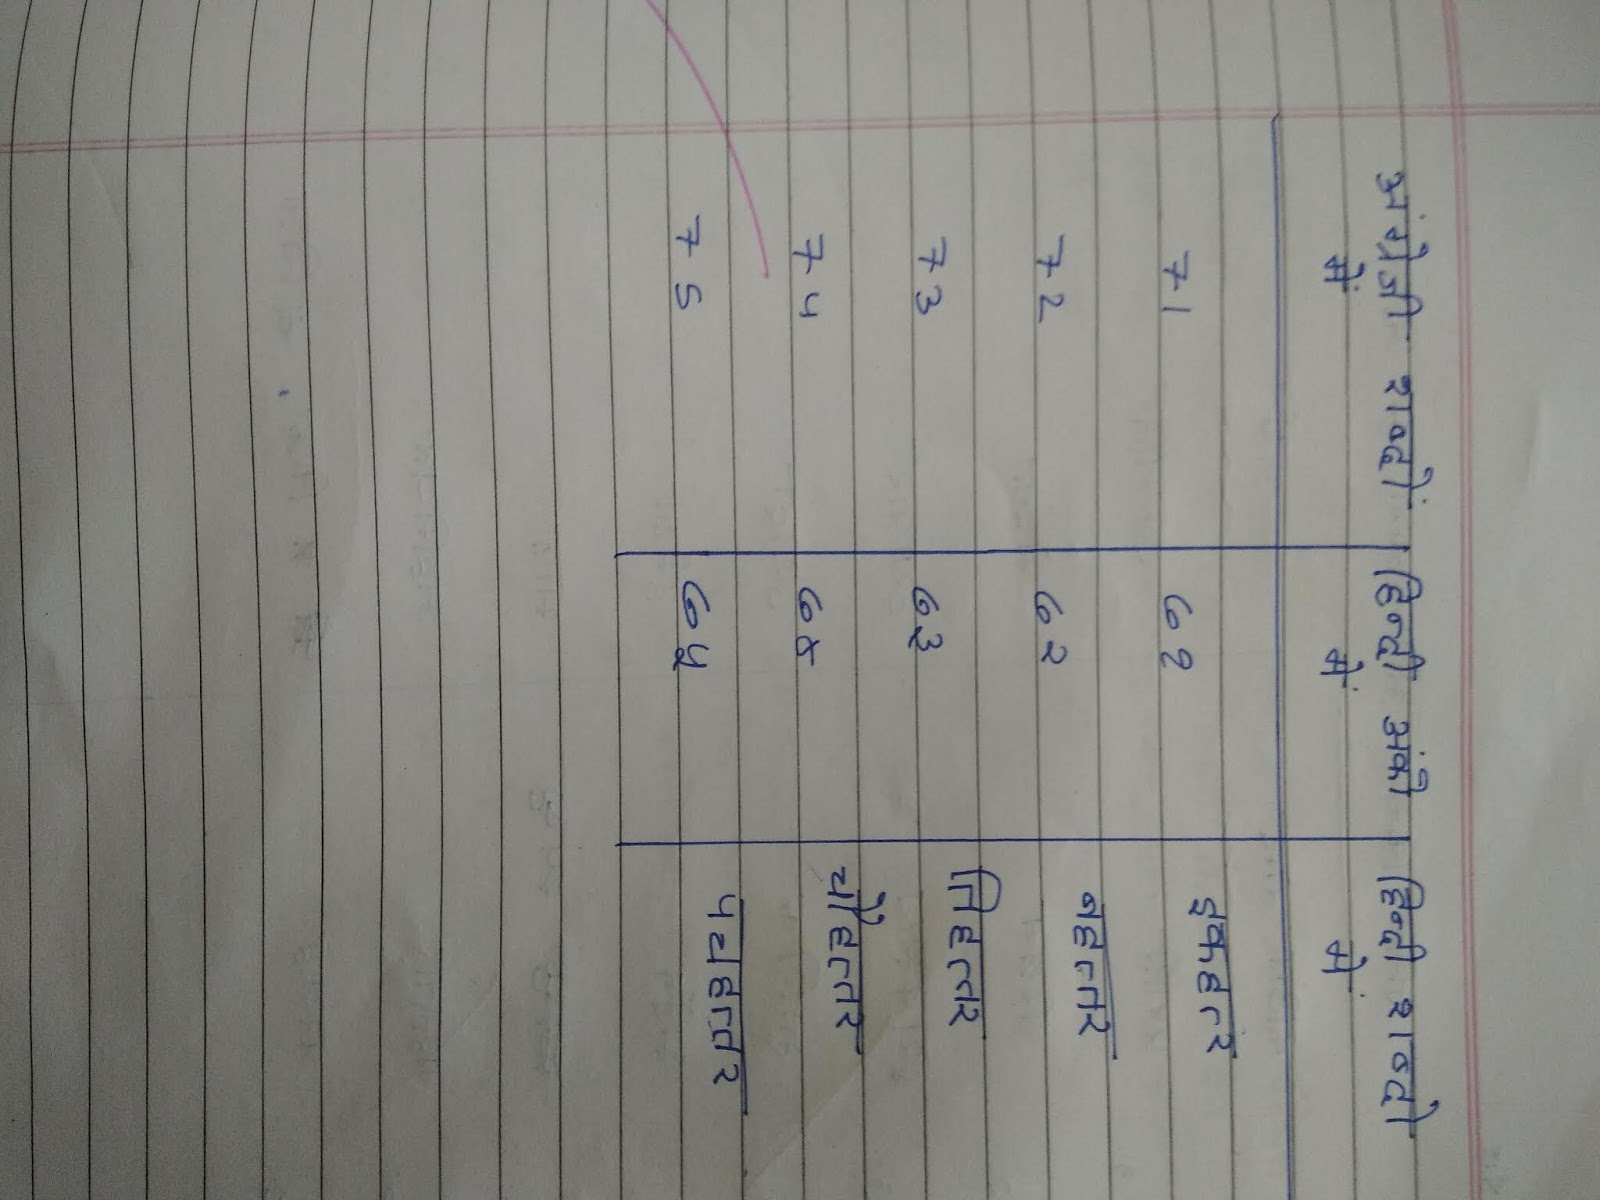 अंग्रेजी शब्दों में हिन्दी अंको में हिन्दी शब्दो में
71 ७१ इकहत्तर
72 ७२ बहत्तर
73 ७३ तिहत्तर
74 ७४ चौहत्तर
75 ७५ पचहत्तर